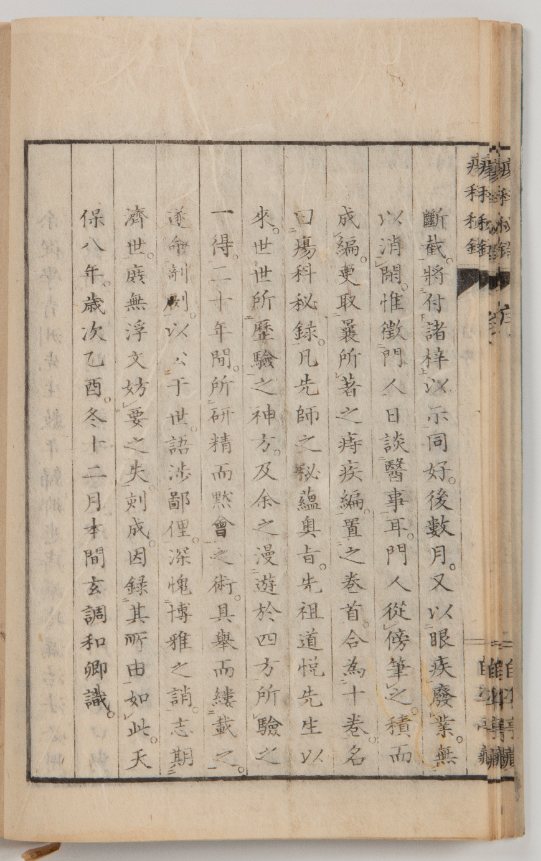 斷截。將付諸梓以示同好。後數月。又以眼疾廢業。無
以消閑。惟徵門人日談醫事耳。門人從傍筆之。積而
成編。更取曩所著之痔疾編。置之卷首。合為十卷。名
曰瘍科秘錄。凡先師之秘蘊奧旨。先祖道悅先生以
來。世世所歷驗之神方。及余之漫遊於四方所驗之
一得。二十年間。所研精而默會之術。具舉而縷載之。
遂命剞劂。以公于世。語涉鄙俚。深愧博雅之誚。志期
濟世。庶無浮文妨要之失。刻成。因錄其所由如此。天
保八年。歲次乙酉。冬十二月本間玄調和卿識。